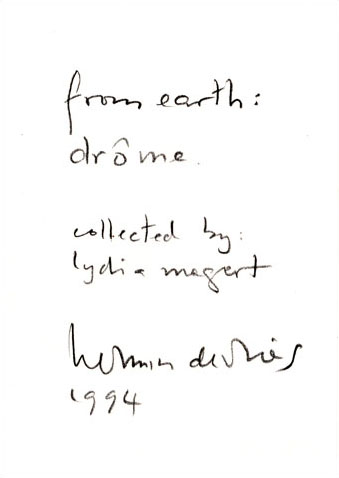 from earth:
drôme.
collected by:
lydia megert
herman de vries
1994